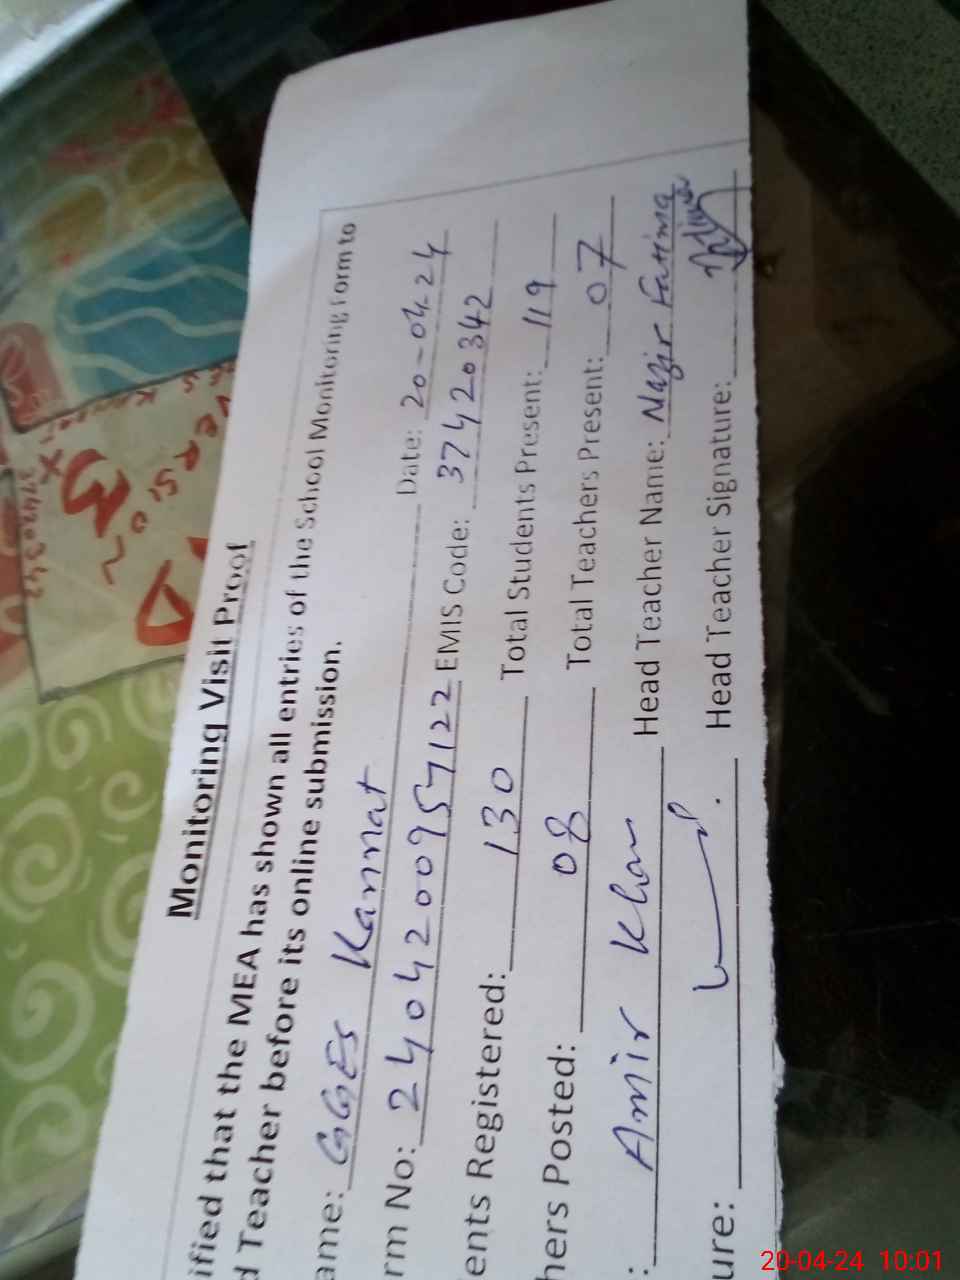 Monitoring Visit Proof
ified that the MEA has shown all entries of the School Monitoring Form to
d Teacher before its online submission.
ame: GGES Kannat Date: 20-04-24
rm No: 24044200957122 EMIS Code: 37420342
ents Registered: 130 Total Students Present: 119
hers Posted: 08 Total Teachers Present: 07
: Amir Khan Head Teacher Name: Nazir Fatima
ure: Head Teacher Signature:
37420342
20-04-24 10:01